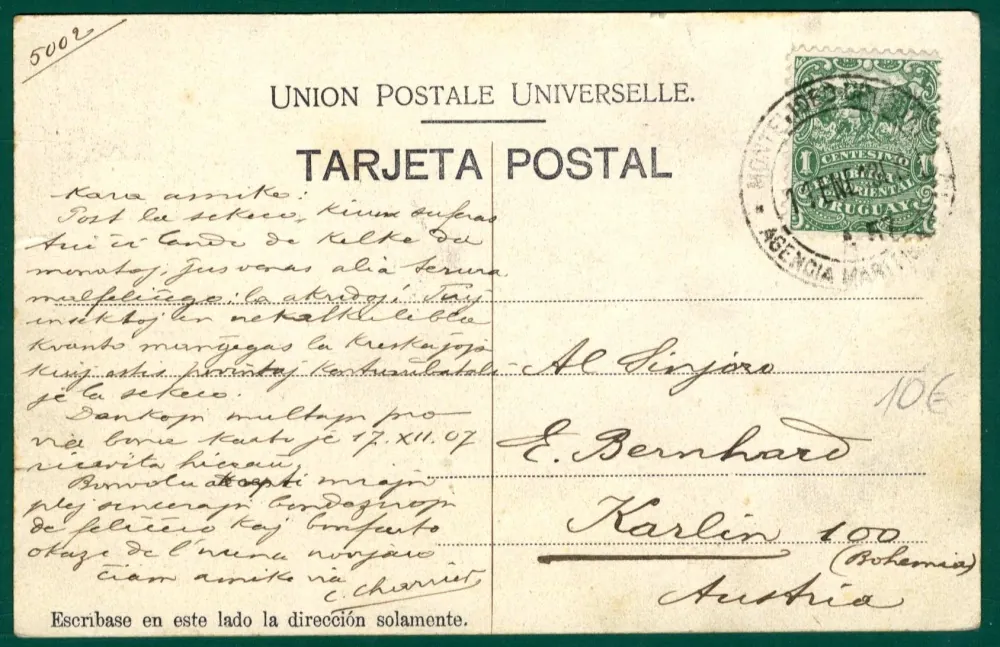 5002
UNION POSTALE UNIVERSELLE.
TARJETA POSTAL
MONTEVIDEO
AGENCIA MARITIMA
1 CENTESIMO 1
ORIENTAL
URUGUAY
Kara amiko:
Post la sekeco, kiun suferas
tiu ĉi lando de kelke da
monatoj, ĵus venas alia terura
malfeliĉego: la akridoj! Tiuj
insektoj en nekalkulebla
kvanto manĝegas la kreskaĵojn
kiuj estis
je la sekeco.
Dankojn multajn pro
via bona karto je 17.XII.07
ricevita hieraŭ,
Bonvolu akcepti miajn
plej sincerajn bondezirojn
de feliĉeco kaj bonfarto
okaze de l'nuna novjaro
ĉiam amike via
C. Charrier
Al Sinjoro
E. Bernhard
Karlin 100
(Bohemia)
Austria
10€
Escríbase en este lado la dirección solamente.